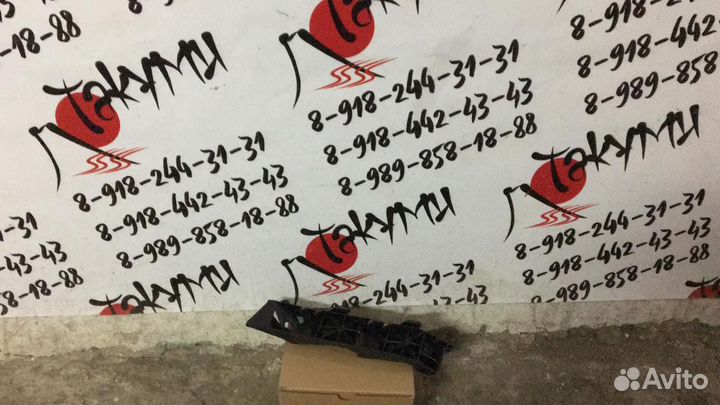 8-989-858
Такуми
8-918-244-31-31
8-918-442-43-43
8-989-858-18-88
-18-88
Такуми
8-918-244-31-31
8-918-442-43-43
8-989-858-18-88
8-918-244-
8-918-442-
8-989-858
Такуми
8-918-244-31-31
8-918-442-43-43
8-989-858-18-88
-31
-43-43
58-18-88
Такуми
8-918-244-31-31
43
Такуми
Avito